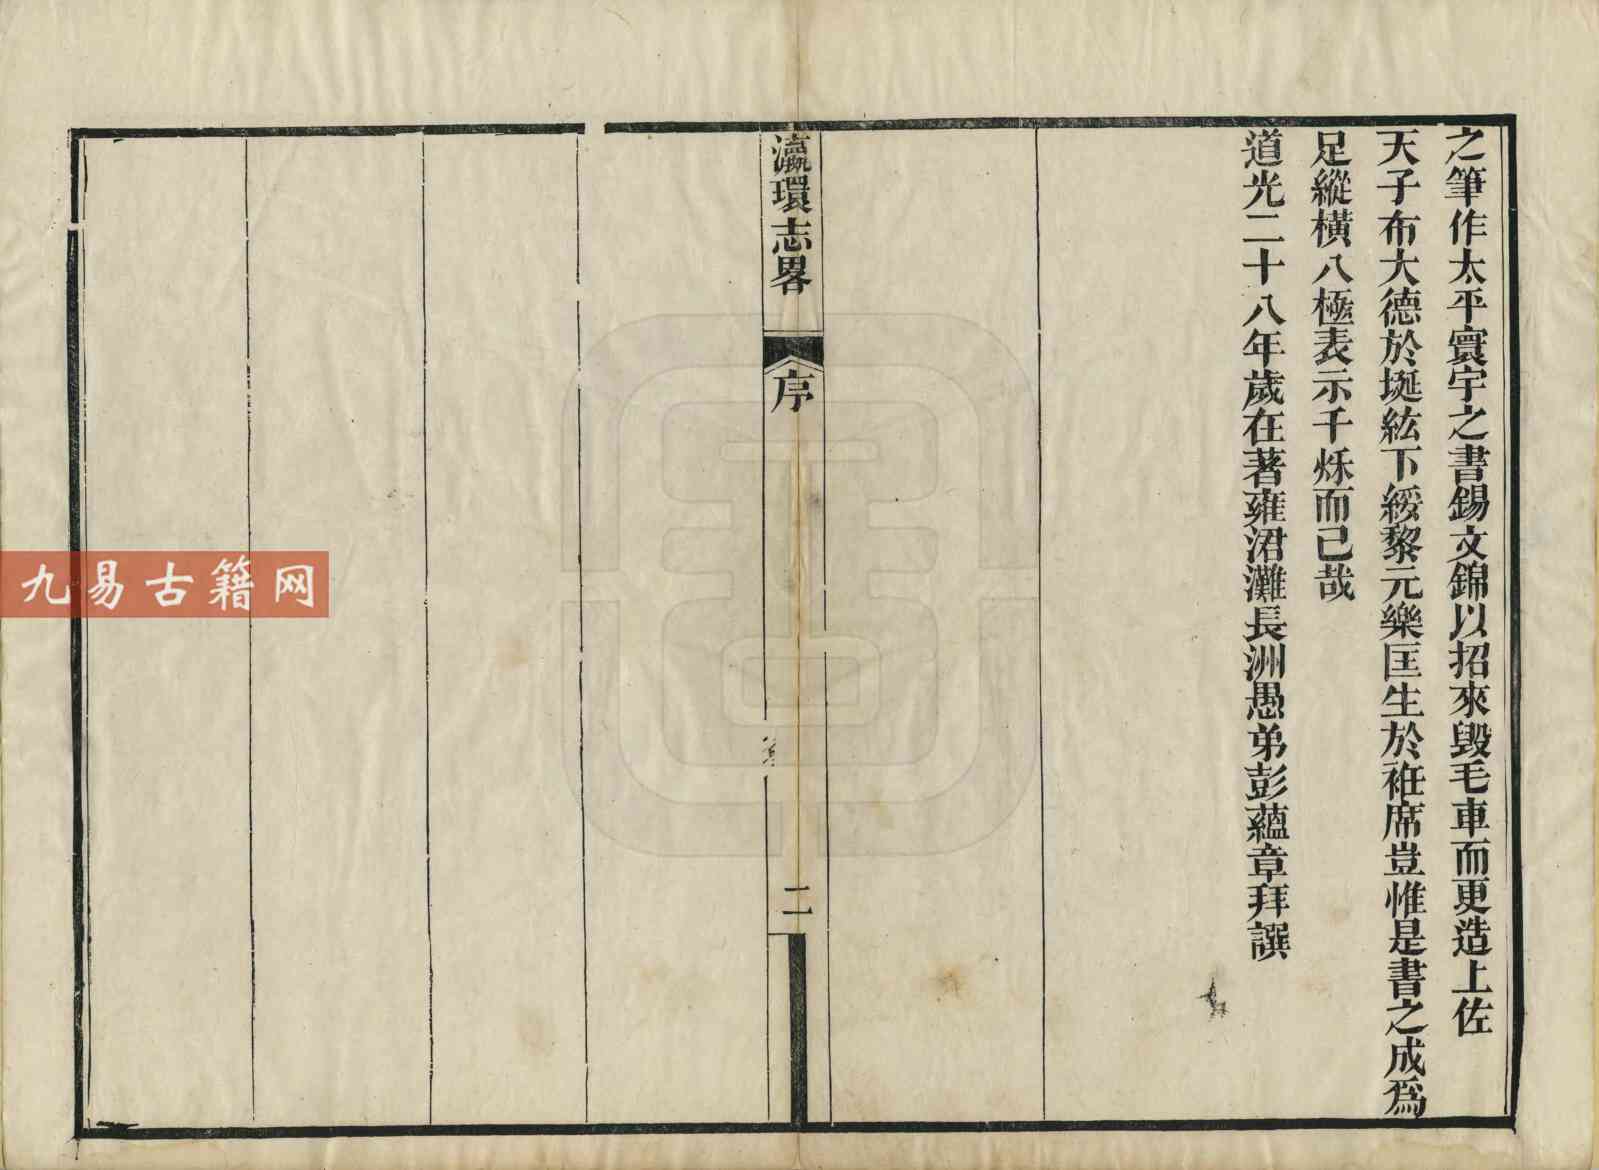 之筆作太平寰宇之書錫文錦以招來毀毛車而更造上佐
天子布大德於埏紘下綏黎元樂匡生於袵席豈惟是書之成爲
足縱橫八極表示千烁而已哉
道光二十八年歲在著雍涒灘長洲愚弟彭蘊章拜譔
瀛環志畧
序
二
九易古籍网